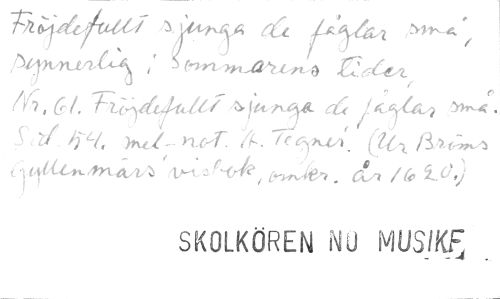 Fröjdefullt sjunga de fåglar små,
synnerlig i sommarens tider,
Nr. 61. Fröjdefullt sjunga de fåglar små.
Sid. 54. mel-not. A. Tegnér. (Ur Bröms
Gyllenmärs' visbok, omkr. år 1620.)
SKOLKÖREN NU MUSIKF